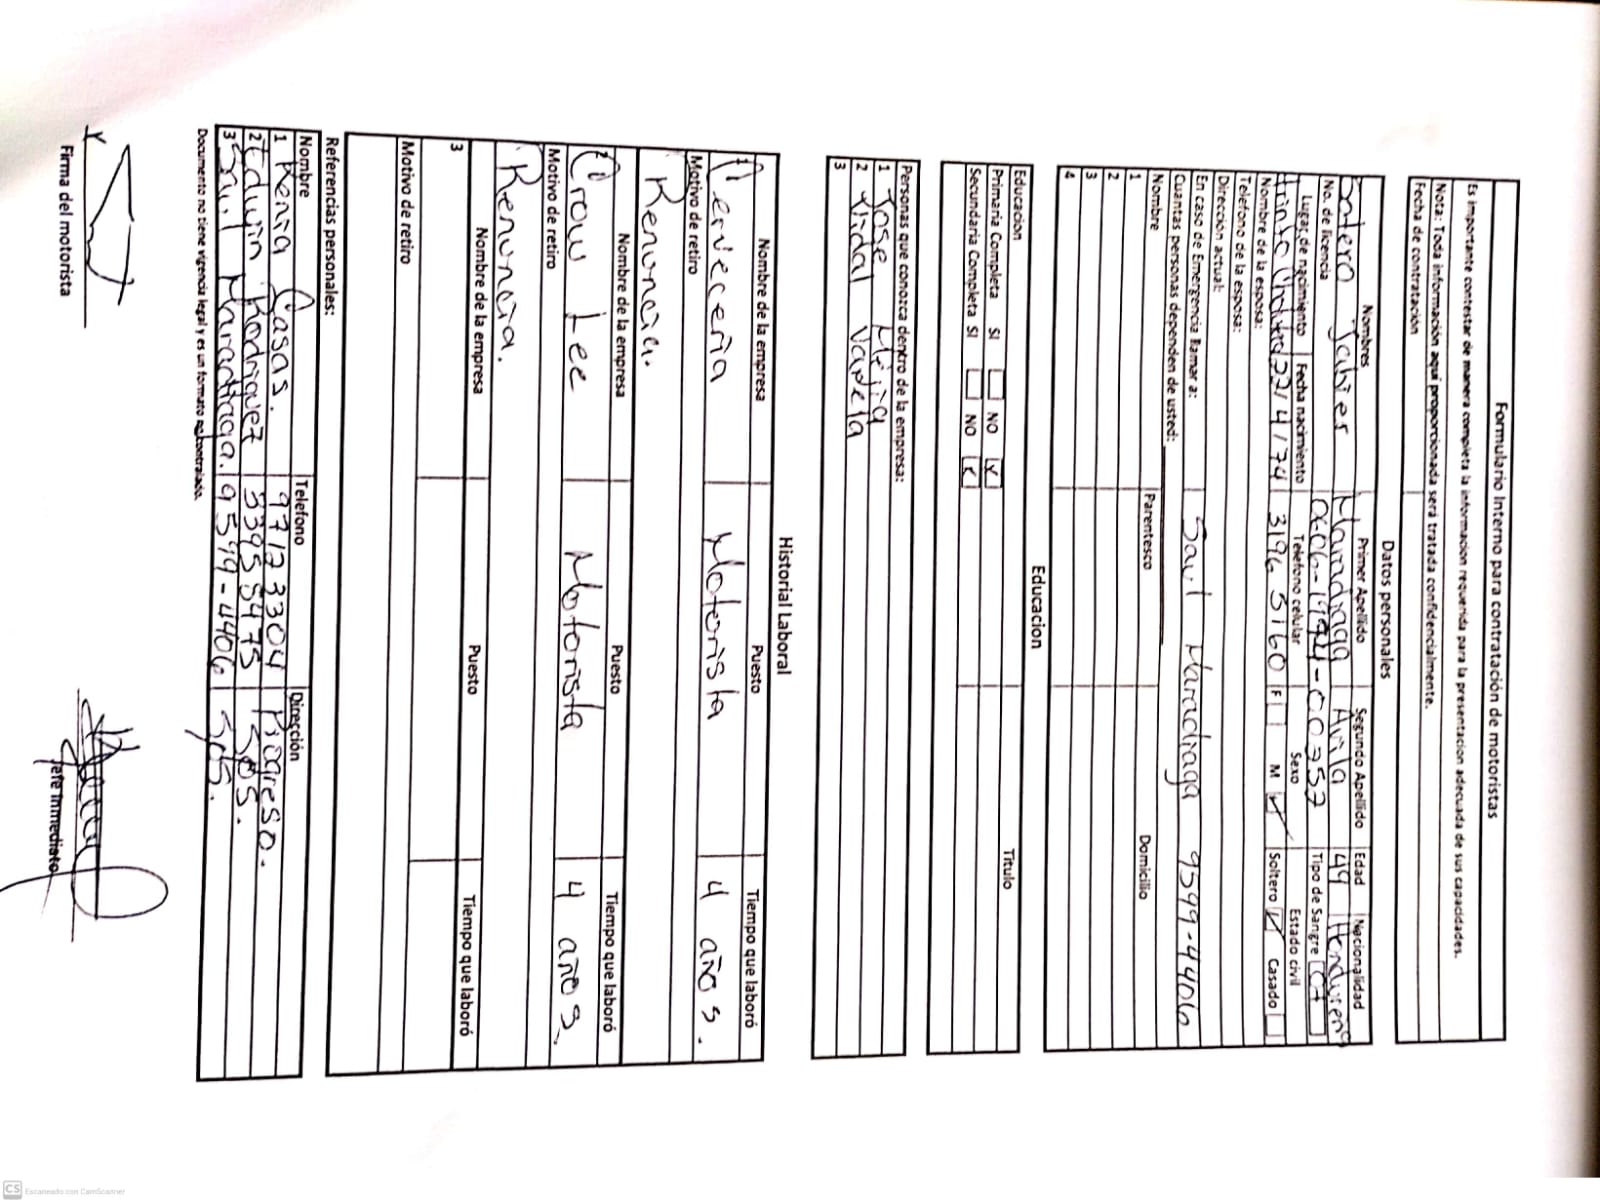 Formulario Interno para contratación de motoristas
Es importante contestar de manera completa la informacion requerida para la presentacion adecuada de sus capacidades.
Nota: Toda informacion aqui proporcionada será tratada confidencialmente.
Fecha de contratación
Datos personales
Nombres Primer Apellido Segundo Apellido Edad Nacionalidad
Javier Maradiaga Avila 49 Hondureña
No. de licencia Tipo de Sangre
Lugar de nacimiento Fecha nacimiento Telefono celular Sexo Estado civil
22/4/74 3196 3160 F M Soltero Casado
Nombre de la esposa:
Telefono de la esposa:
Dirección actual:
En caso de Emergencia llamar a: Saul Maradiaga 9599-4406
Cuantas personas dependen de usted:
Nombre Parentesco Domicilio
1
2
3
4
Educacion
Educacion Titulo
Primaria Completa SI NO X
Secundaria Completa SI NO X
Personas que conozca dentro de la empresa:
1 Jose Mejia
2 Vidal Varela
3
Historial Laboral
Nombre de la empresa Puesto Tiempo que laboró
1 Cerveceria Motorista 4 años.
Motivo de retiro
Renuncia.
Nombre de la empresa Puesto Tiempo que laboró
2 Crow Lee Motorista 4 años.
Motivo de retiro
Renuncia.
Nombre de la empresa Puesto Tiempo que laboró
3
Motivo de retiro
Referencias personales:
Nombre Telefono Dirección
1 Kenia Casas. 97123304 Progreso.
2 Edwin Rodriguez 33958475 SPS.
3 Saul Maradiaga. 9599-4406 SPS.
Documento no tiene vigencia legal y es un formato no contralado.
Firma del motorista
Jefe Inmediato
CS Escaneado con CamScanner